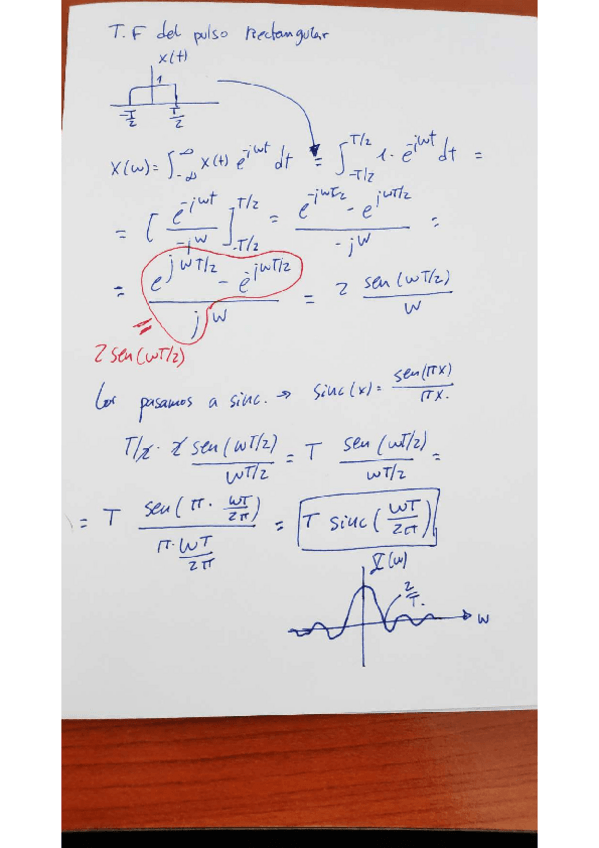 T.F del pulso Rectangular
x(t)
1
-T/2 T/2
X(w) = ∫_{-∞}^{∞} x(t) e^{-jwt} dt = ∫_{-T/2}^{T/2} 1· e^{-jwt} dt =
= [ e^{-jwt} / -jw ]_{-T/2}^{T/2} = (e^{-jwT/2} - e^{jwT/2}) / -jw =
= (e^{jwT/2} - e^{-jwT/2}) / jw = 2 sen(wT/2) / w
= 2 sen(wT/2)
pasamos a sinc. → sinc(x) = sen(πx) / πx.
T/2 · 2 sen(wT/2) / wT/2 = T sen(wT/2) / wT/2 =
= T sen(π · wT/2π) / (π · wT/2π) = T sinc(wT/2π)
X(w)
2/T.
w